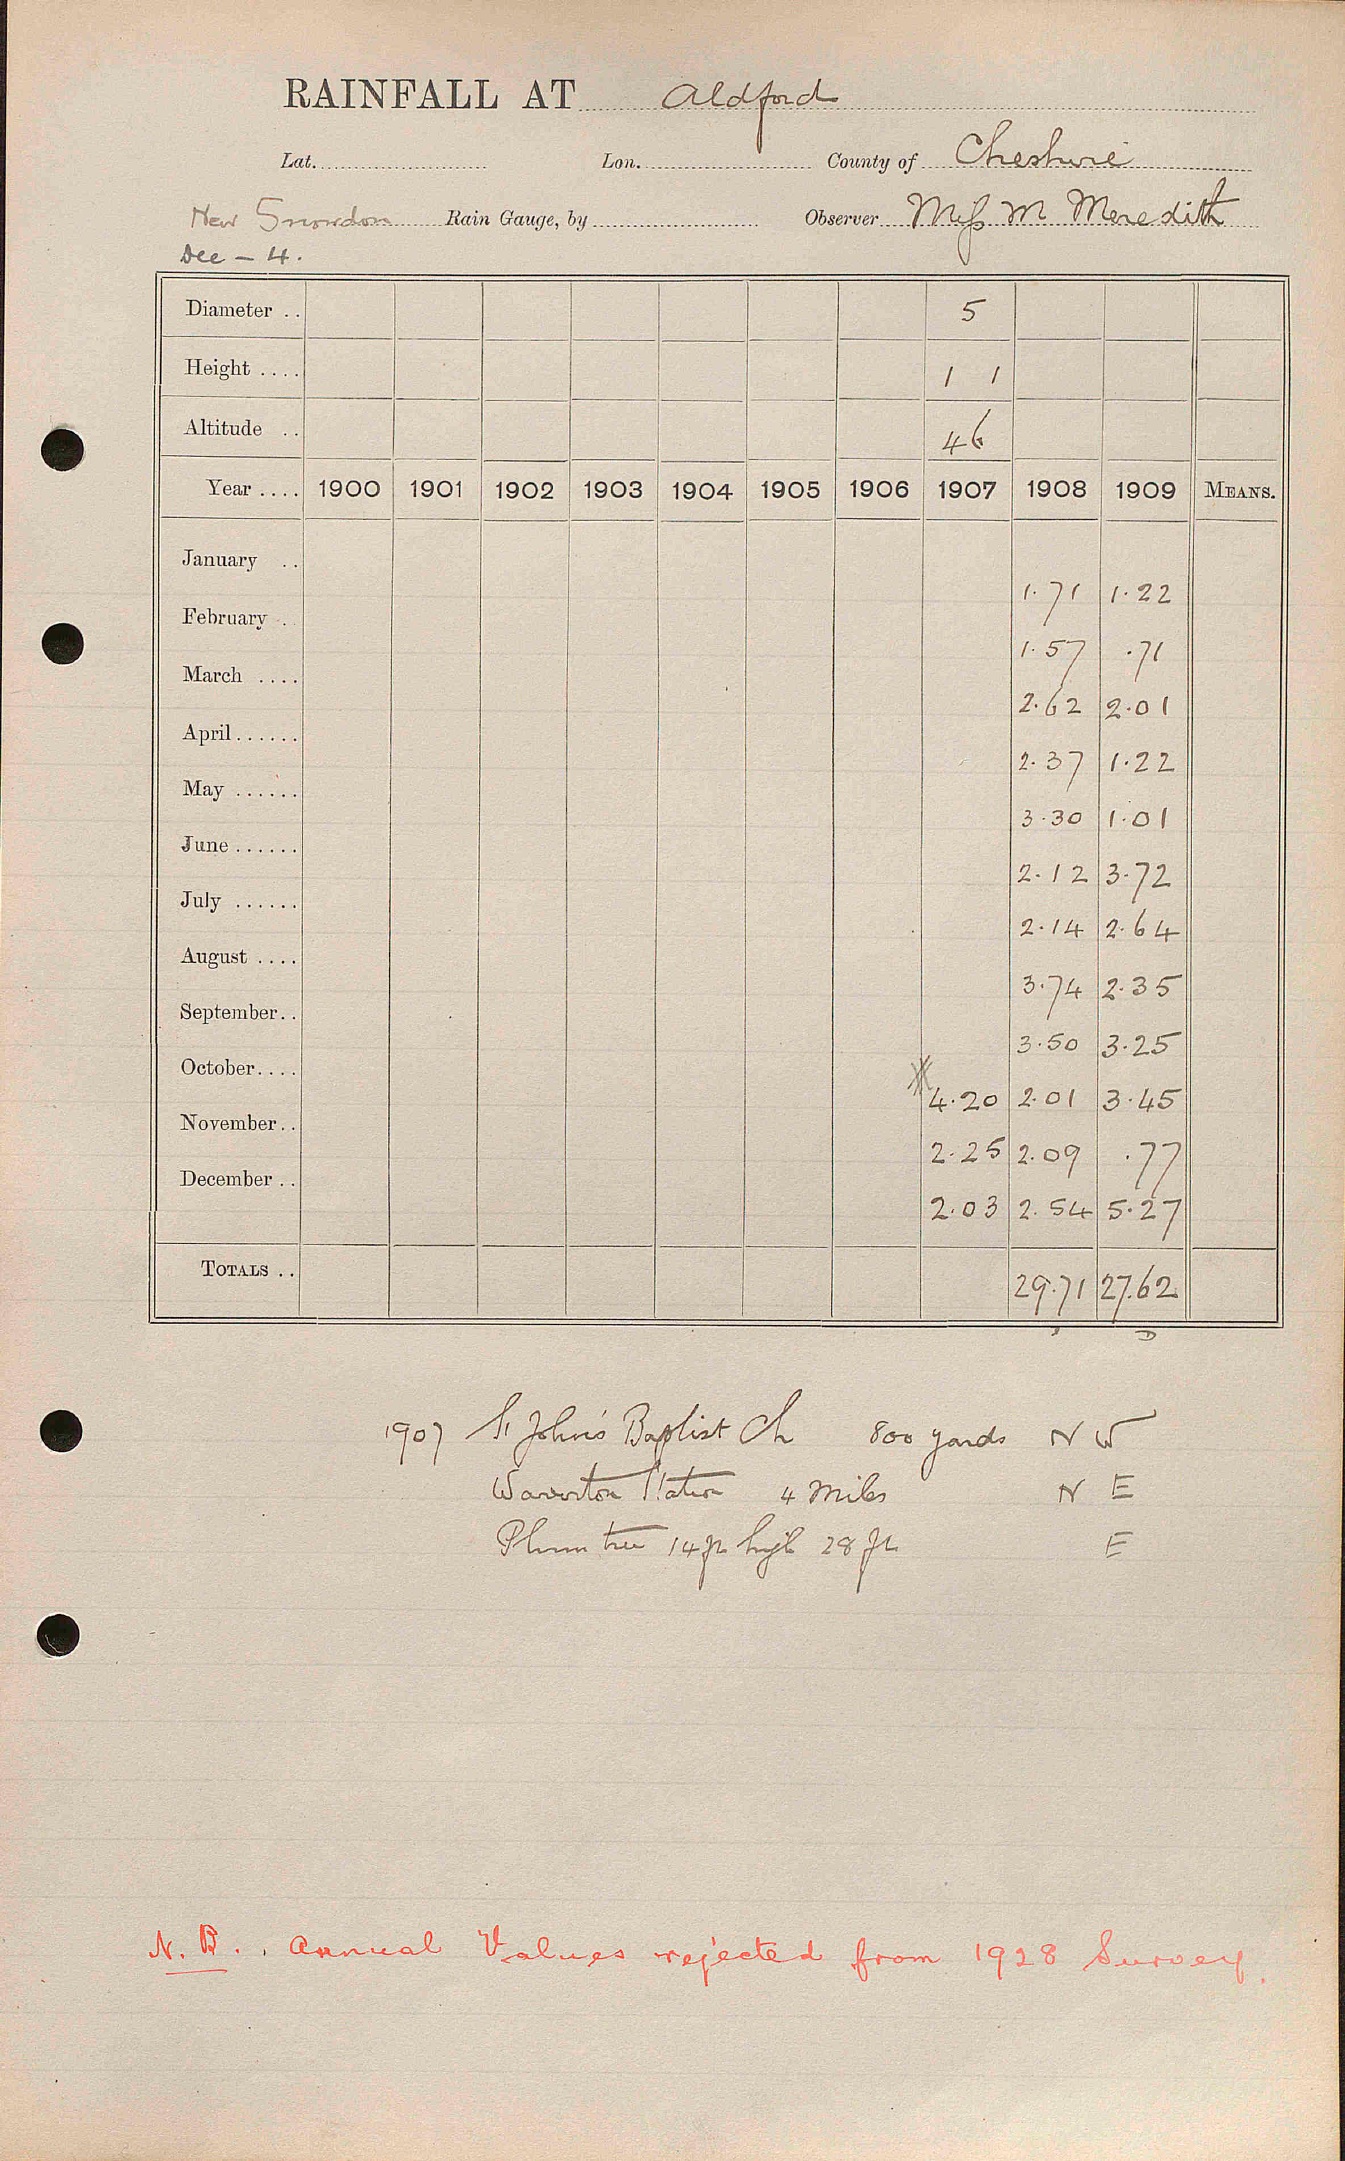 RAINFALL AT Aldford
Lat. Lon. County of Cheshire
New Snowdon Rain Gauge, by Observer Miss M Meredith
Dec - 4.
Diameter .. 5
Height .... 1 1
Altitude .. 46
Year .... 1900 1901 1902 1903 1904 1905 1906 1907 1908 1909 MEANS.
January .. 1.71 1.22
February . 1.57 .71
March .... 2.62 2.01
April...... 2.37 1.22
May ...... 3.30 1.01
June...... 2.12 3.72
July ...... 2.14 2.64
August .... 3.74 2.35
September.. 3.50 3.25
October.... 4.20 2.01 3.45
November.. 2.25 2.09 .77
December .. 2.03 2.54 5.27
TOTALS .. 29.71 27.62
1907 St John's Baptist Ch 800 yards N W
Waverton Station 4 Miles N E
Plum tree 14 ft high 28 ft E
N.B. . Annual Values rejected from 1928 Survey.